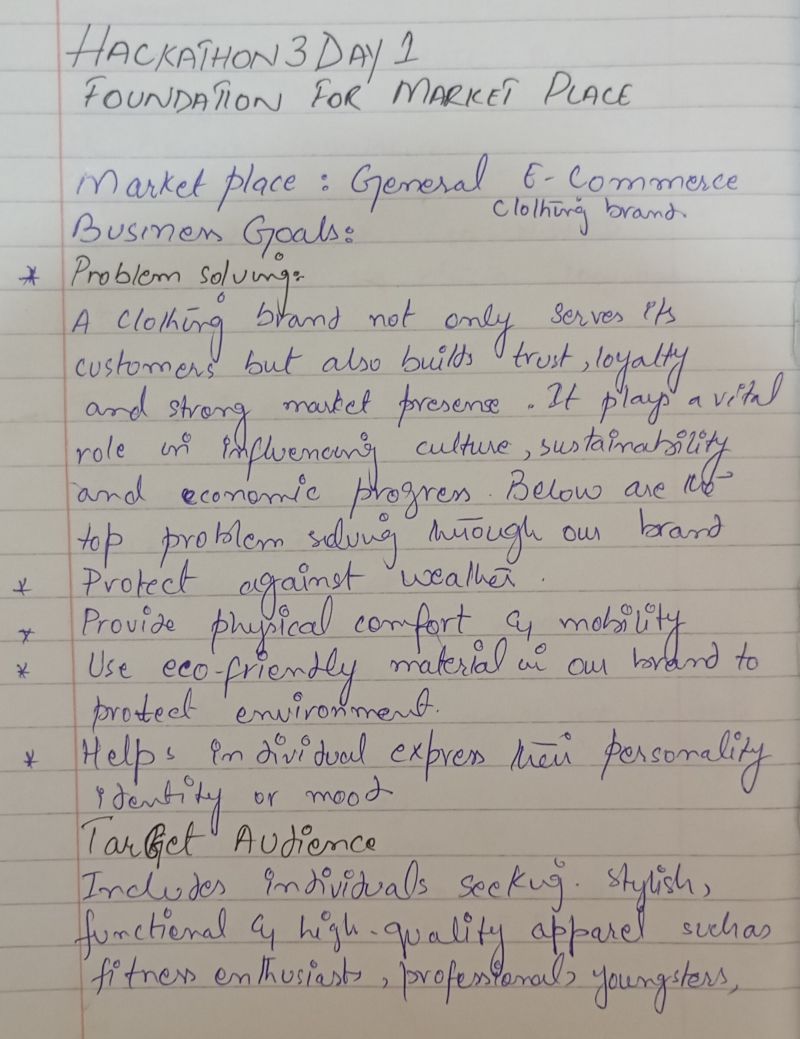 HACKATHON 3 DAY 1
FOUNDATION FOR MARKET PLACE
Market place : General E-Commerce
Clothing brand.
Business Goals:
* Problem solving:
A clothing brand not only serves its
customers but also builds trust, loyalty
and strong market presense. It plays a vital
role in influencing culture, sustainability
and economic progress. Below are the
top problem solving through our brand
* Protect against weather.
* Provide physical comfort & mobility
* Use eco-friendly material in our brand to
protect environment.
* Helps individual express their personality
identity or mood
TarGet Audience
Includes individuals seeking. stylish,
functional & high-quality apparel such as
fitness enthusiasts, professionals, youngsters,